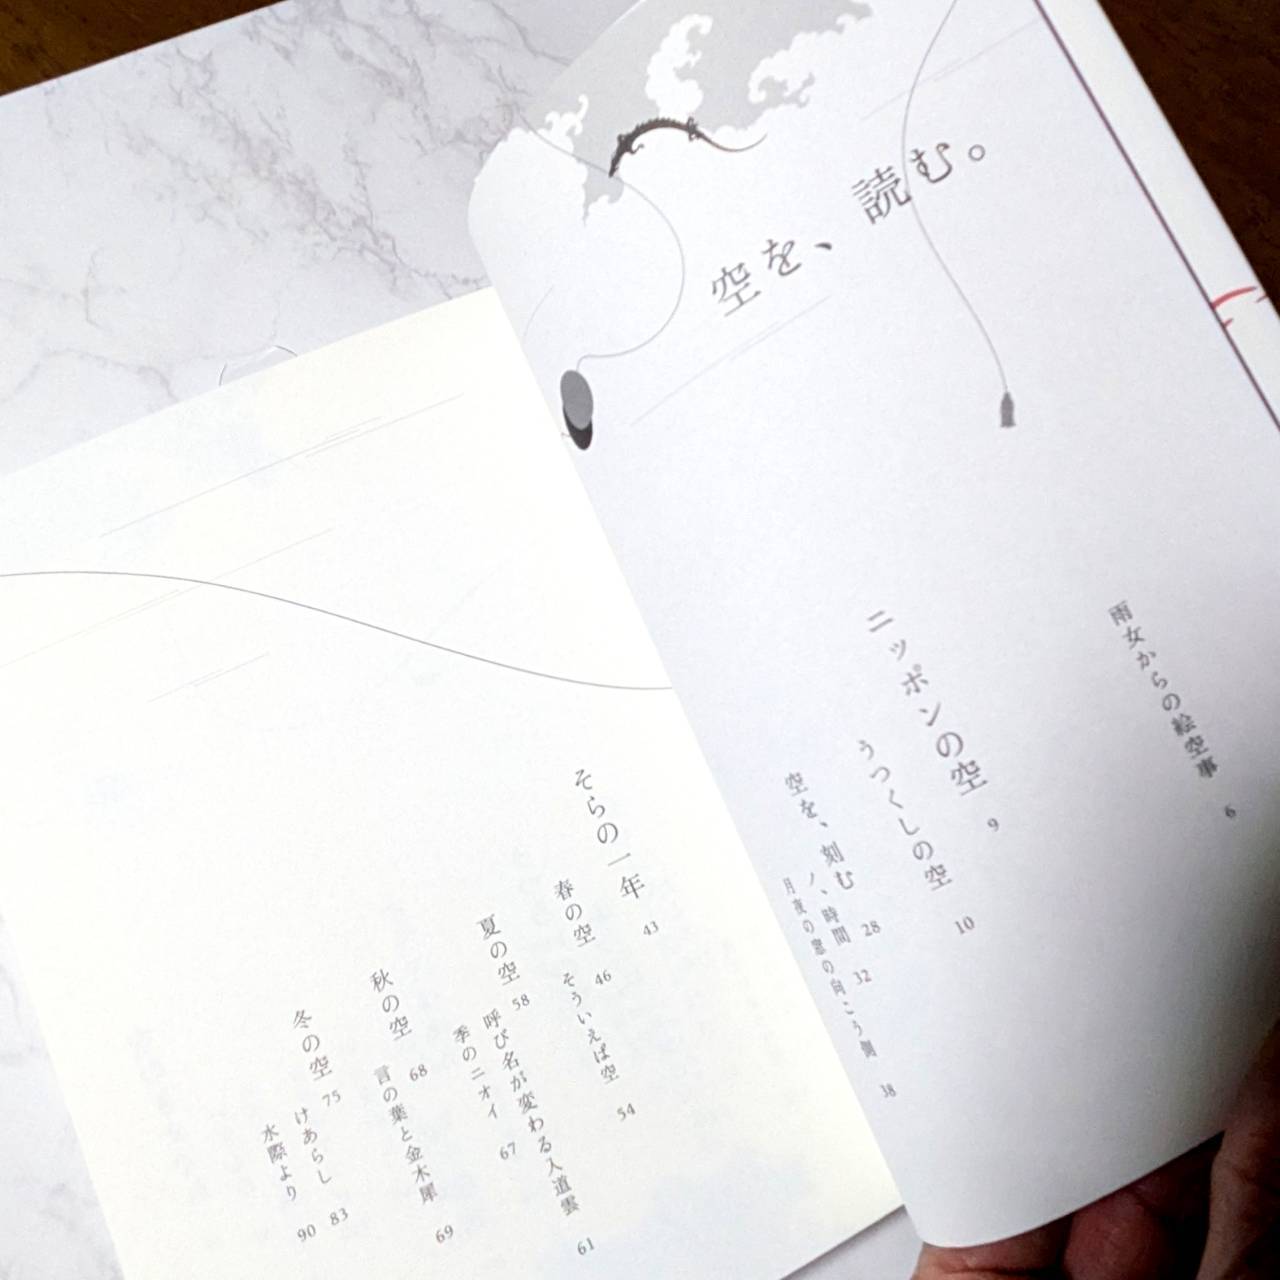 空を、読む。
雨女からの絵空事 6
ニッポンの空 9
うつくしの空 10
空を、刻む 28
ノ、時間 32
月夜の窓の向こう側 38
そらの一年 43
春の空 46
そういえば空 54
夏の空 58
呼び名が変わる入道雲 61
季のニオイ 67
秋の空 68
言の葉と金木犀 69
冬の空 75
けあらし 83
水際より 90